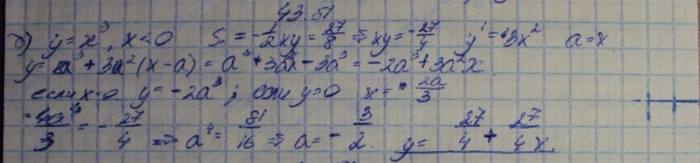 43.51
б) y = x³, x < 0 S = -1/2 xy = 27/8 ⇒ xy = -27/4 y' = 3x² a = x
y = a³ + 3a²(x - a) = a³ + 3a²x - 3a³ = -2a³ + 3a²x
если x=0 y = -2a³; если y=0 x = 2a/3
-4a⁴/3 = -27/4 ⇒ a⁴ = 81/16 ⇒ a = -3/2. y = 27/4 + 27/4 x.